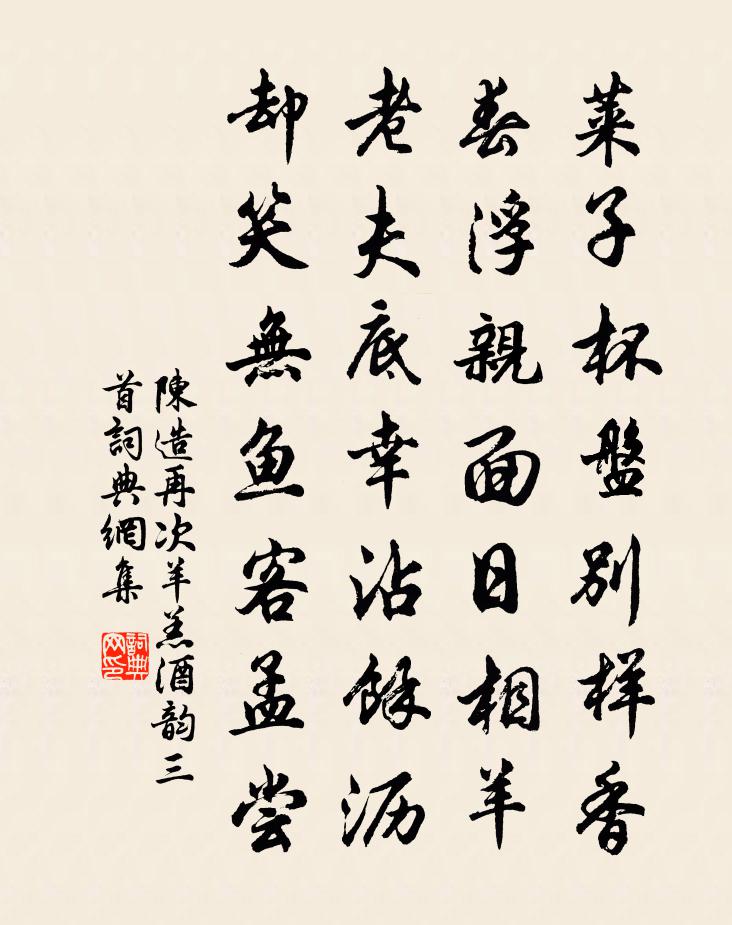 菜子杯盤別样香
春浮親面日相羊
老夫底幸沾餘沥
却笑無魚客孟尝
陳造再次羊羔酒韵三
首詞典網集
詞典
网